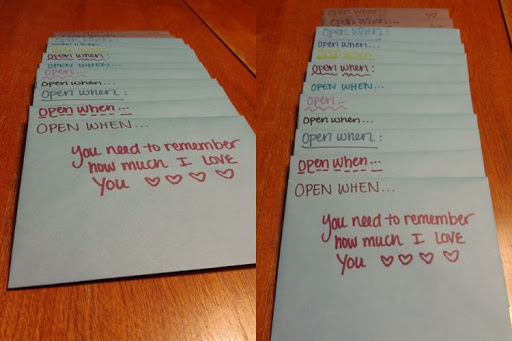 Open when:
OPEN WHEN...
Open...
open when...
Open when:
Open when...
OPEN WHEN...
You need to remember
how much I LOVE
You ♡ ♡ ♡ ♡
Open when...
Open when:
open when...
Open when:
OPEN WHEN...
Open...
open when...
Open when:
Open when...
OPEN WHEN...
You need to remember
how much I LOVE
You ♡ ♡ ♡ ♡